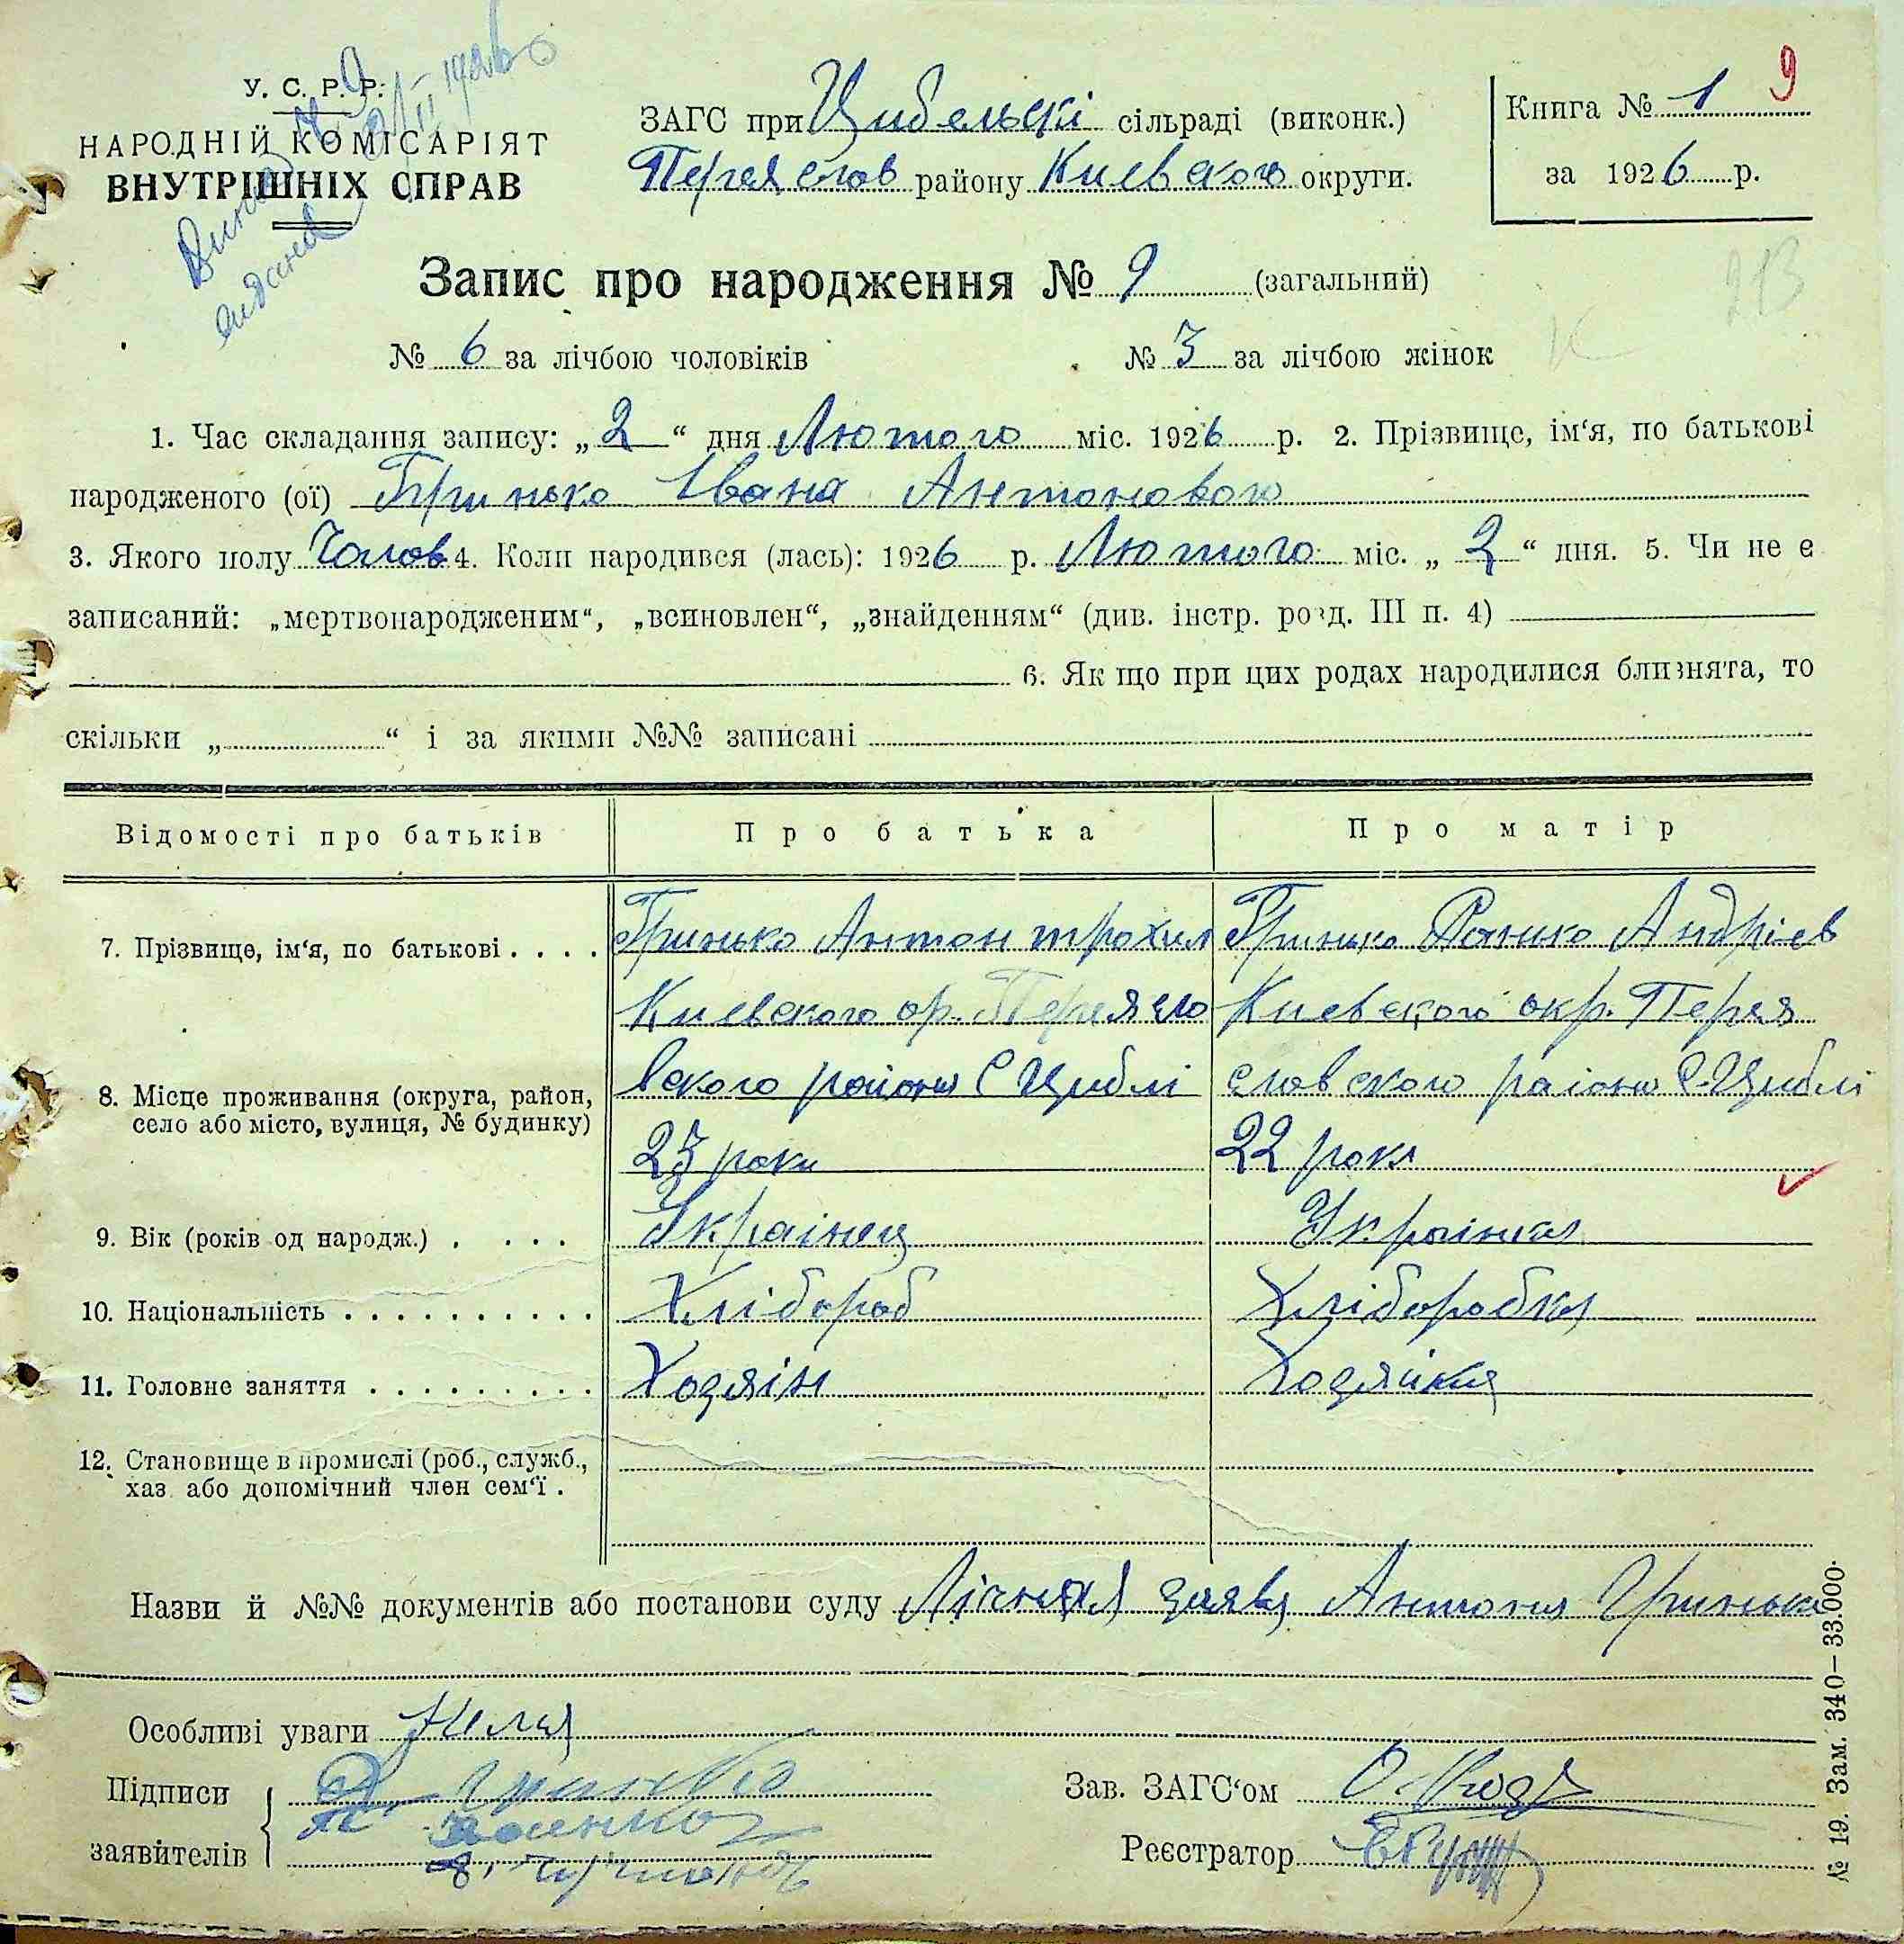 У. С. Р. Р.
НАРОДНІЙ КОМІСАРІЯТ
ВНУТРІШНІХ СПРАВ
ЗАГС при Цибельскі сільраді (виконк.)
Переяслов району Киевского округи.
Книга № 1 9
за 1926 р.
Запис про народження № 9 (загальний)
213
№ 6 за лічбою чоловіків № 3 за лічбою жінок
1. Час складання запису: „2“ дня Лютого міс. 1926 р. 2. Прізвище, ім‘я, по батькові
народженого (ої) Гринько Івана Антонового
3. Якого полу Чолов 4. Коли народився (лась): 1926 р. Лютого міс. „2“ дня. 5. Чи не є
записаний: „мертвонародженим“, „всиновлен“, „знайденням“ (див. інстр. розд. III п. 4)
6. Як що при цих родах народилися близнята, то
скільки „ “ і за якими №№ записані
Відомості про батьків Про батька Про матір
7. Прізвище, ім‘я, по батькові . . . . Гринько Антон трохим Гринько Андріев
Киевского ор. Переясло Киевского окр. Перея
8. Місце проживання (округа, район, вского района С Циблі словского района С-Циблі
село або місто, вулиця, № будинку)
23 роки 22 рокы
9. Вік (років од народж.) . . . . Украінец Украінка
10. Національність . . . . . . . . . . Хлібороб Хліборобка
11. Головне заняття . . . . . . . . . Хозяін Хозяйка
12. Становище в промислі (роб., служб.,
хаз. або допомічний член сем‘ї .
Назви й №№ документів або постанови суду Лічная заява Антона Гринька
Особливі уваги
Підписи Гринько Зав. ЗАГС‘ом
заявителів Реєстратор
№ 19. Зам. 340—33.000.